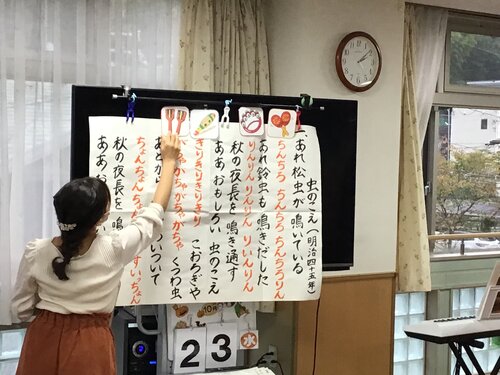 虫のこえ(明治四十五年)
一、あれ松虫が鳴いている
ちんちろ ちんちろ ちんちろりん
あれ鈴虫も鳴きだした
りんりん りんりん りいんりん
秋の夜長を鳴き通す
ああおもしろい 虫のこえ
きりきりきりきり こおろぎや
がちゃがちゃがちゃ くつわ虫
あとから いついて
ちょんちょんちょん すいっちょん
秋の夜長を鳴き
ああおも
23 水